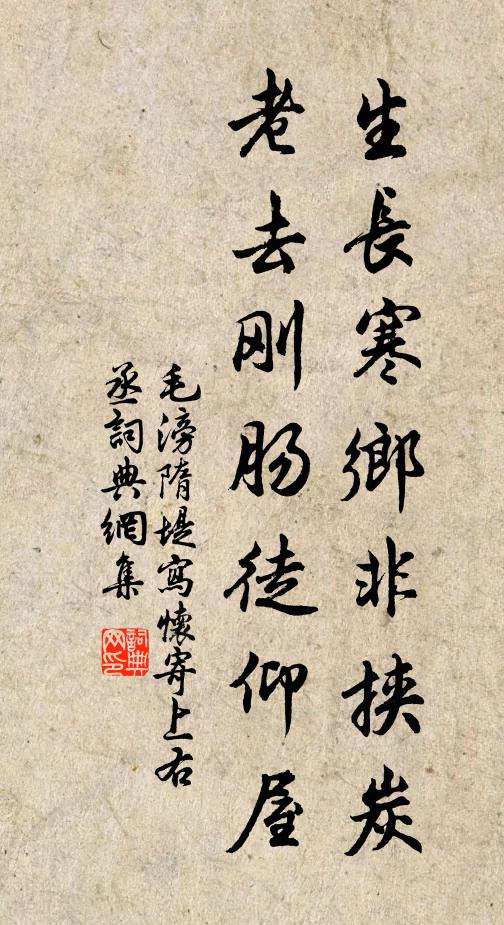 生長寒鄉非挾炭
老去刚肠徒仰屋
毛滂隋堤寫懷寄上右
丞詞典網集
詞典网印